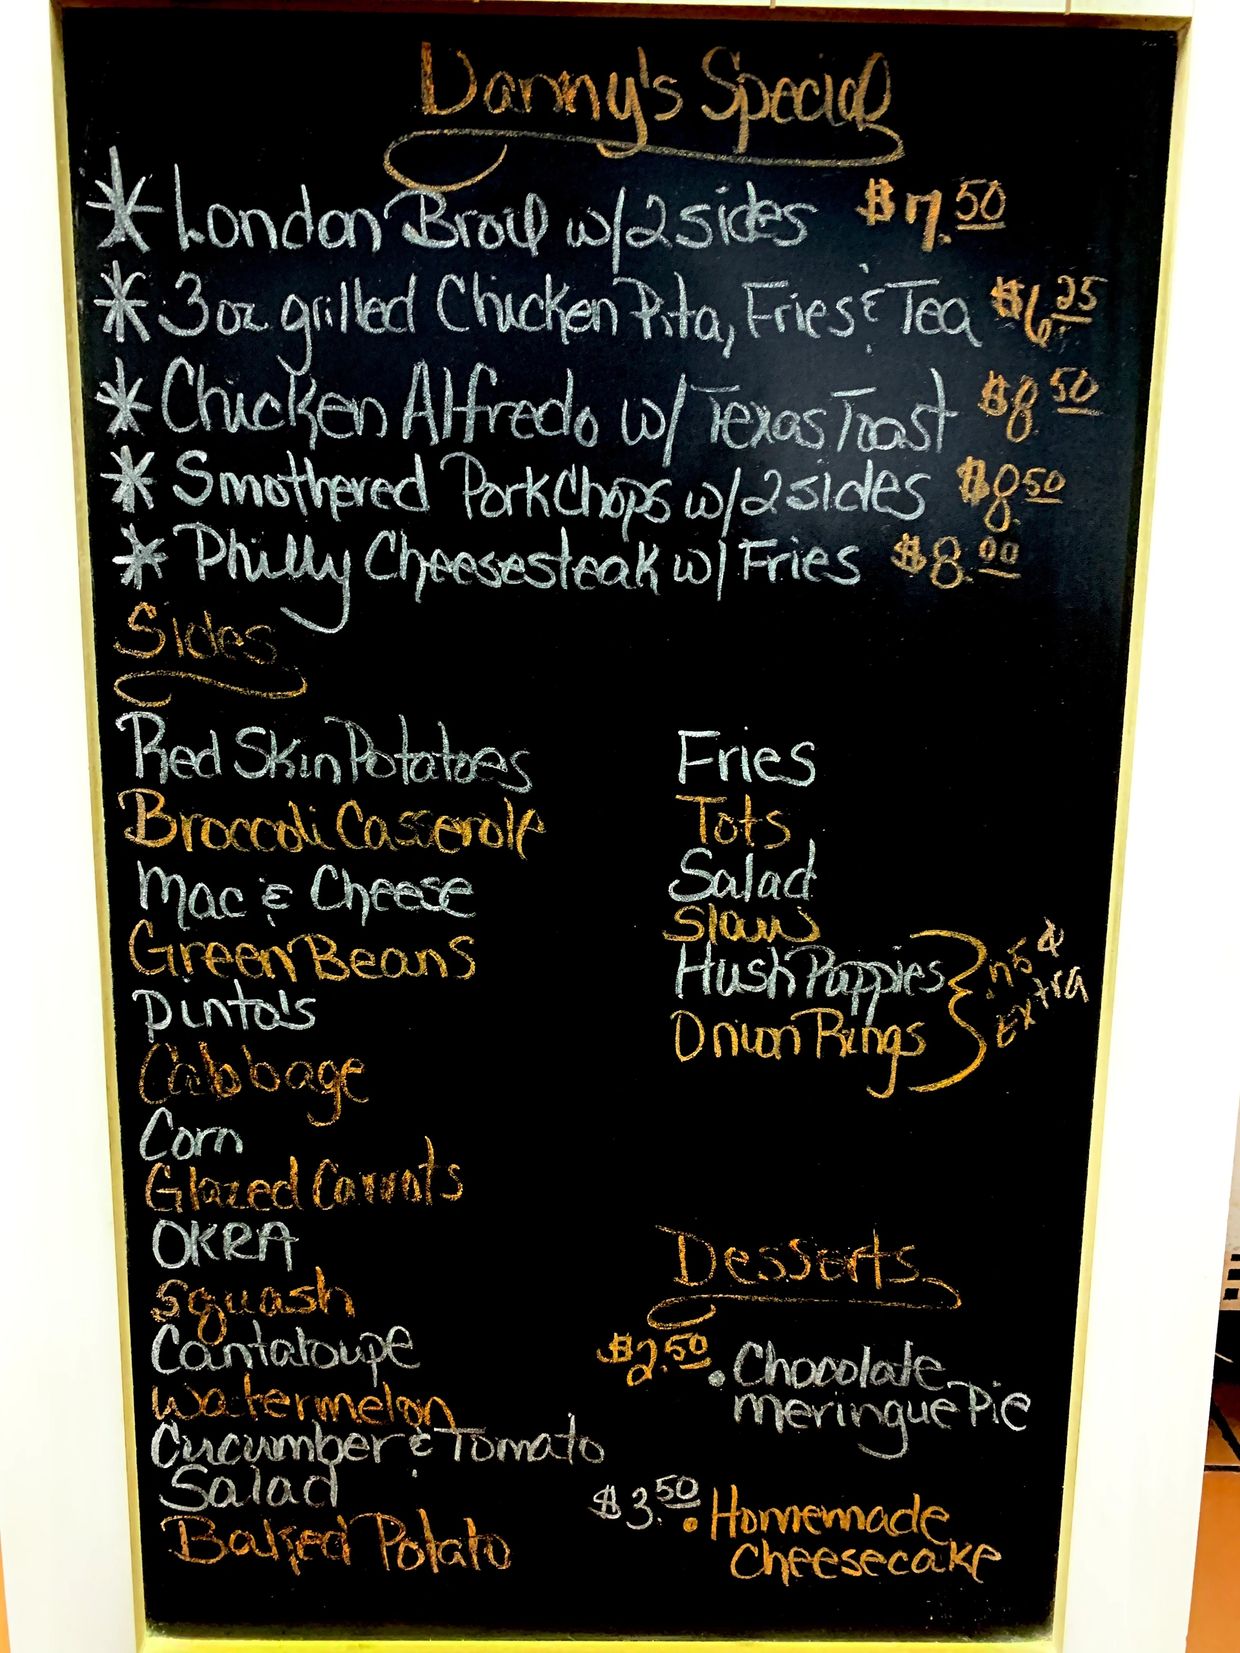 Danny's Special
* London Broil w/2 sides $7.50
* 3oz grilled Chicken Pita, Fries & Tea $6.25
* Chicken Alfredo w/ Texas Toast $8.50
* Smothered Pork Chops w/2 sides $8.50
* Philly Cheesesteak w/ Fries $8.00
Sides
Red Skin Potatoes
Broccoli Casserole
Mac & Cheese
Green Beans
Pinto's
Cabbage
Corn
Glazed Carrots
OKRA
Squash
Cantaloupe
Watermelon
Cucumber & Tomato
Salad
Baked Potato
Fries
Tots
Salad
Slaw
Hush Puppies
Onion Rings
75¢
Extra
Desserts
$2.50 • Chocolate
meringue Pie
$3.50 • Homemade
Cheesecake